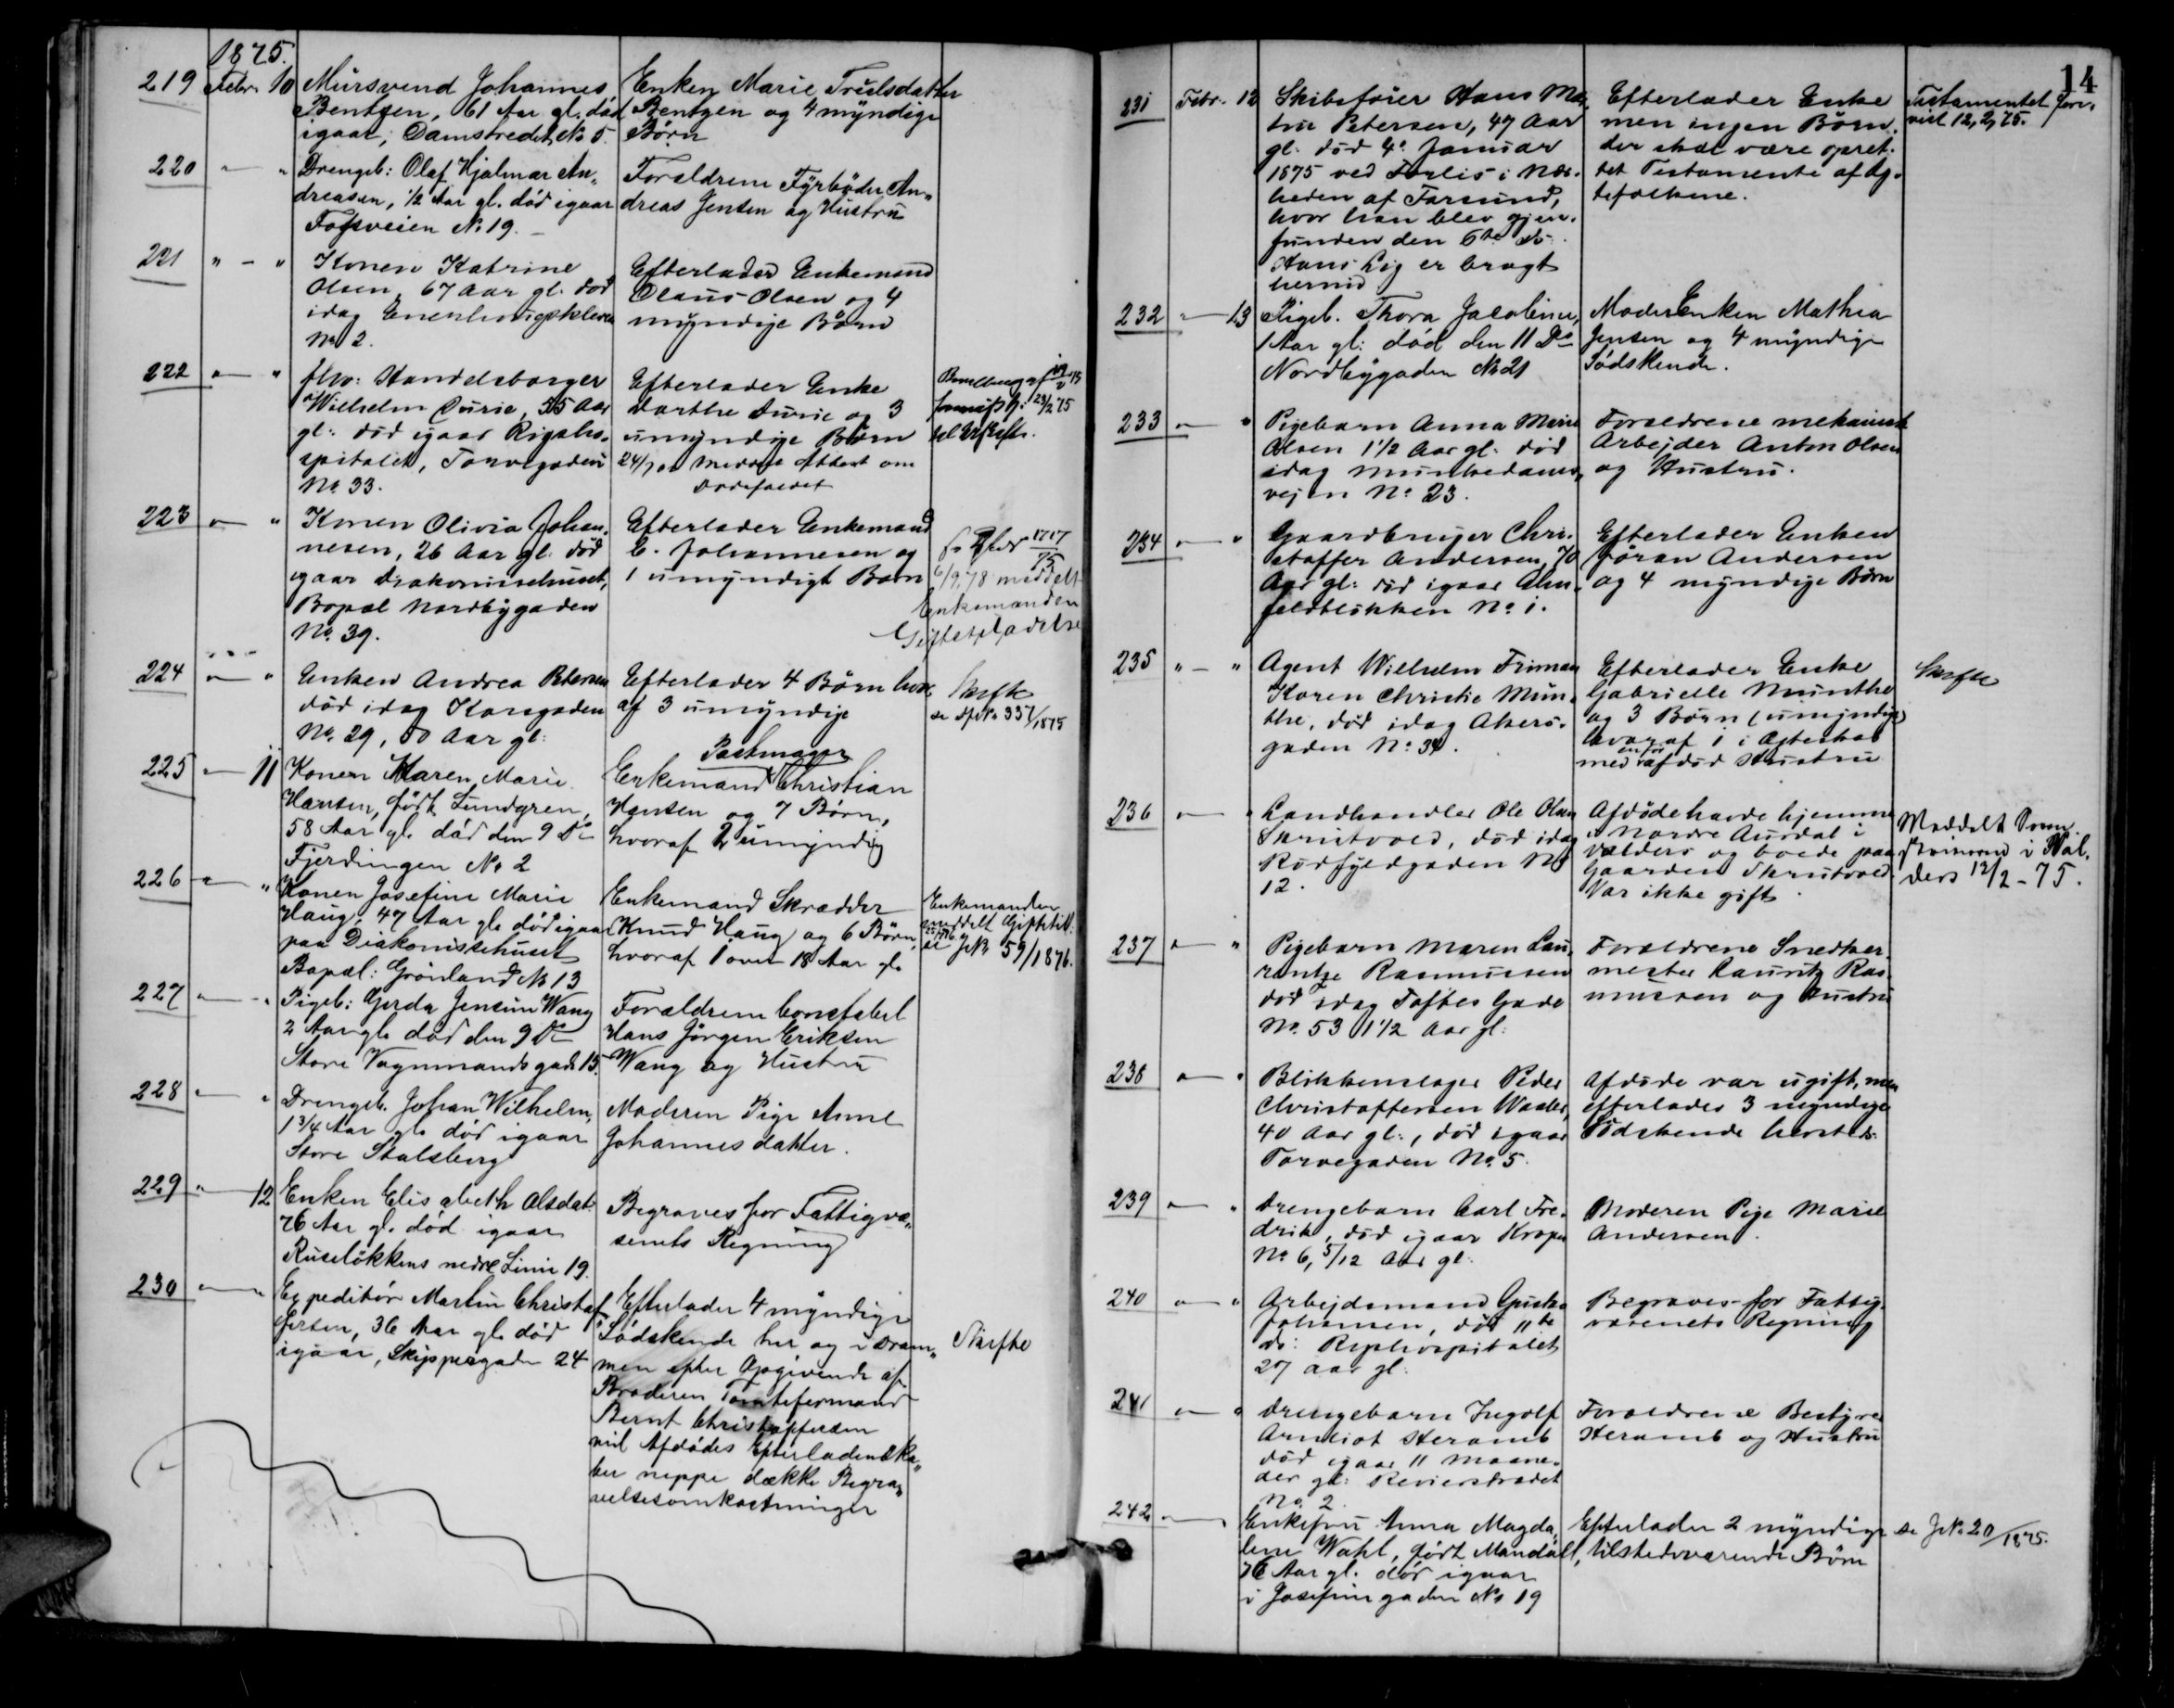 1875.
219 Febr. 10 Mursvend Johannes Enken Marie Trulsdatter
Bentzen, 61 Aar gl. død Bentzen og 4 myndige
igaar, Damstredet No 5. Børn
220 " - " Drengeb: Olaf Hjalmar An- Forældrene Fyrbøder An-
dreasen, 1/2 Aar gl. død igaar dreas Jensen og Hustru
Fossveien No 19.
221 " - " Konen Katrine Efterlader Enkemand
Olsen, 67 Aar gl. død Olaus Olsen og 4
idag Enerhougskleven myndige Børn
No 2.
222 " - " fhv: Handelsborger Efterlader Enke
Wilhelm Durie, 55 Aar Dorthe Durie og 3
gl: død igaar Rigsho- umyndige Børn 23/2 75
spitalet, Torvegaden 24/2 Meddelt Attest om
No 33. Dødsfaldet
223 " - " Konen Olivia Johan- Efterlader Enkemand
nesen, 26 Aar gl. død C. Johannesen og
igaar Diakonissehuset, 1 umyndigt Barn 6/9.78 meddelt
Bopæl Nordbygaden Enkemanden
No. 39. Giftetilladelse
224 " - " Enken Andrea Petersen Efterlader 4 Børn hvor- Skifte
død idag Korsgaden af 3 umyndige se No 337/1875
No. 29, 50 Aar gl:
Postmager
225 " - 11 Konen Maren Marie Enkemand Christian
Hansen, født Lundgren, Hansen og 7 Børn,
58 Aar gl. død den 9 Ds hvoraf 2 umyndig
Fjerdingen No 2
226 " - " Konen Josefine Marie Enkemand Skrædder Enkemanden
Haug, 47 Aar gl. død igaar Knud Haug og 6 Børn, meddelt Giftetill.
paa Diakonissehuset hvoraf 1 over 18 Aar gl. se JNo 59/1876.
Bopæl: Grønland No 13
227 " - " Pigeb: Gerda Jensine Wang Forældrene Constabel
2 Aar gl. død den 9 Ds Hans Jørgen Eriksen
Store Vognmandsgade 15. Wang og Hustru
228 " - " Drengeb. Johan Wilhelm, Moderen Pige Anne
1 3/4 Aar gl. død igaar Johannesdatter.
Store Stalsberg
229 " - 12 Enken Elisabeth Olsdat. Begraves for Fattigvæ-
76 Aar gl. død igaar senets Regning
Ruseløkkens nedre Linie 19.
230 " - " Expeditør Martin Christof- Efterlader 4 myndige
fersen, 36 Aar gl. død Sødskende her og i Dram- Skifte
igaar, Skippergaden 24 men efter Opgivende af
Broderen Tomteformand
Bernt Christoffersen
vil Afdødes Efterladenska-
ber neppe dække Begra-
velsesomkostninger
14
231 Febr. 12 Skibsfører Hans Ma- Efterlader Enke Testamentet fore-
Petersen, 47 Aar men ingen Børn. vist 12, 2, 75.
gl. død 4de Januar der skal være opret-
1875 ved Forlis i Nær- tet Testamente af Æg-
heden af Farsund, tefolkene.
hvor han blev gjen-
funden den 6te ds.
Hans Lig er bragt
herned
232 " - 13 Pigeb. Thora Jacobine, Moder Enken Mathea
1 Aar gl: død den 11 Ds Jensen og 4 myndige
Nordbygaden No 21 Sødskende.
233 " - " Pigebarn Anna Marie Forældrene mekanisk
Olsen 1 1/2 Aar gl. død Arbejder Anton Olsen
idag Munkedams- og Hustru.
vejen No. 23.
234 " - " Gaardbruger Chri- Efterlader Enken
stoffer Andersen, 70 Jøran Andersen
Aar gl: død igaar Alm- og 4 myndige Børn
feldtløkken No. 1.
235 " - " Agent Wilhelm Friman Efterlader Enke Skifte
Koren Christie Mun- Gabrielle Munthe
the, død idag Akers- og 3 Børn (umyndige)
gaden No. 34. hvoraf 1 i Ægteskab
med en før afdød Hustru
236 " - " Landhandler Ole Olsen Afdøde havde hjemme Meddelt Soren-
Skrutvold, død idag i Nordre Aurdal i skriveren i Val-
Rødfyldgaden No Valders og boede paa ders 12/2 - 75.
12. Gaarden Skrutvold.
Var ikke gift.
237 " - " Pigebarn Maren Lau- Forældrene Snedker-
rentze Rasmussen mester Lauritz Ras-
død idag Toftes Gade mussen og Hustru
No. 53 1 1/2 Aar gl:
238 " - " Blikkenslager Peder Afdøde var ugift, men
Christoffersen Waaler, efterlader 3 myndige
40 Aar gl:, død igaar Sødskende hersteds.
Torvegaden No. 5.
239 " - " Drengebarn Carl Fre- Moderen Pige Marie
drik, død igaar Krogen Andersen.
No 6, 5/12 Aar gl:
240 " - " Arbejdsmand Gusta Begraves for Fattig-
Johansen, død 11te væsenets Regning
ds: Rigshospitalet
27 Aar gl:
241 " - " Drengebarn Ingolf Forældrene Bestyrer
Arnliot Heramb Heramb og Hustru
død igaar 11 Maane-
der gl: Revierstrædet
No. 2.
242 " - " Enkefru Anna Magda- Efterlader 2 myndige se JNo 20/1875.
lene Wahl, født Mandall, tilstedeværende Børn
76 Aar gl. død igaar
i Josefinegaden No 19